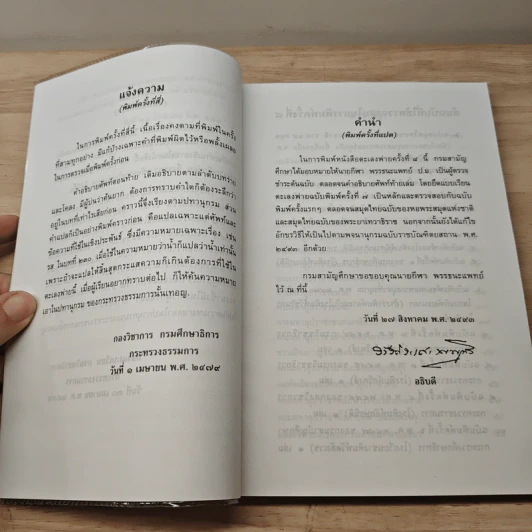 แจ้งความ
(พิมพ์ครั้งที่สี่)
ในการพิมพ์ครั้งที่สี่นี้ เนื้อเรื่องคงตามที่พิมพ์ในครั้ง
ที่สามทุกอย่าง มีแก้บ้างเฉพาะคำที่พิมพ์ผิดไว้หรือพลั้งเผลอ
ในการตรวจเมื่อพิมพ์ครั้งก่อน
คำอธิบายศัพท์ตอนท้าย เดิมอธิบายตามลำดับบทร่าย
และโคลง มีผู้บ่นว่าค้นยาก ต้องการทราบคำใดก็ต้องระลึกว่า
อยู่ในบทที่เท่าไรเสียก่อน คราวนี้จึงเรียงตามปทานุกรม ส่วน
คำแปลก็เป็นอย่างพิมพ์คราวก่อน คือแปลเฉพาะแต่ศัพท์และ
ข้อความที่ใช้ในเชิงประพันธ์ ซึ่งมีความหมายเฉพาะเรื่อง เช่น
รส ในบทที่ ๒๓๐ เมื่อใช้ในความหมายว่าน้ำก็แปลว่าน้ำเท่านั้น
เพราะถ้าจะแปลให้สิ้นสุดกระแสความก็เกินต้องการที่ใช้ใน
ตะเลงพ่ายนี้ เมื่อผู้เรียนอยากทราบต่อไป ก็ให้ค้นความหมาย
เอาในปทานุกรม ของกระทรวงธรรมการนั้นเทอญ.
กองวิชาการ กรมศึกษาธิการ
กระทรวงธรรมการ
วันที่ ๑ เมษายน พ.ศ. ๒๔๗๙
คำนำ
(พิมพ์ครั้งที่แปด)
ในการพิมพ์หนังสือตะเลงพ่ายครั้งที่ ๘ นี้ กรมสามัญ
ศึกษาได้มอบหมายให้นายกีฬา พรรธนะแพทย์ ป.ม. เป็นผู้ตรวจ
ชำระต้นฉบับ ตลอดจนคำอธิบายศัพท์ท้ายเล่ม โดยยึดแบบเรียน
ตะเลงพ่ายฉบับพิมพ์ครั้งที่ ๗ เป็นหลักและตรวจสอบกับฉบับ
พิมพ์ครั้งแรกๆ ตลอดจนสมุดไทยฉบับของหอพระสมุดแห่งชาติ
และสมุดไทยฉบับของพระยาเทวาธิราช นอกจากนั้นยังได้แก้ไข
อักขรวิธีให้เป็นไปตามพจนานุกรมฉบับราชบัณฑิตยสถาน พ.ศ.
๒๔๙๓ อีกด้วย.
กรมสามัญศึกษาขอขอบคุณนายกีฬา พรรธนะแพทย์
ไว้ ณ ที่นี้
วันที่ ๒๗ สิงหาคม พ.ศ. ๒๔๙๓
อธิบดี